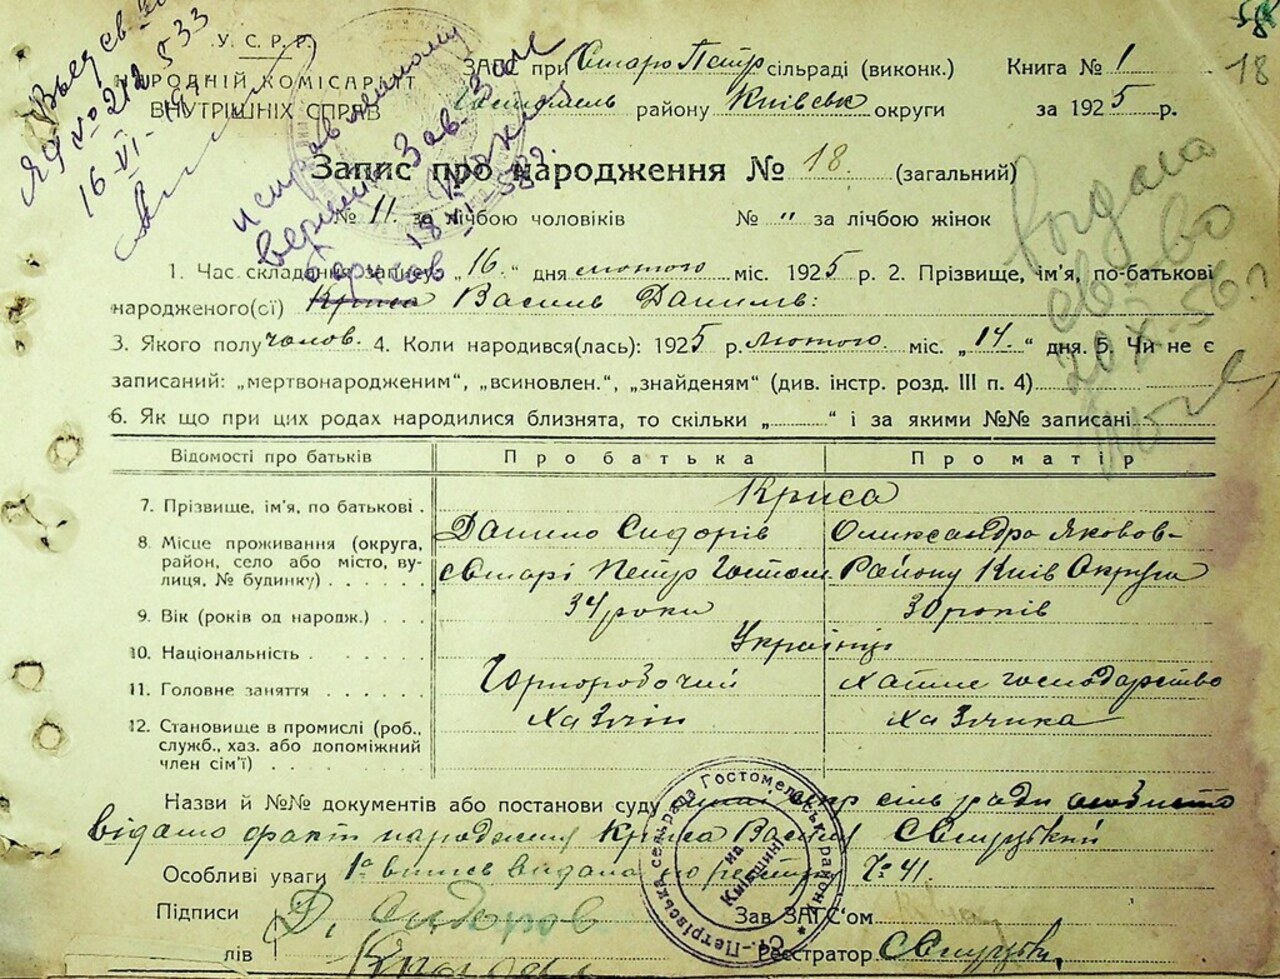 У.С.Р.Р.
НАРОДНІЙ КОМІСАРІЯТ
ВНУТРІШНІХ СПРАВ
ЗАГС при Старо Петр сільраді (виконк.) Книга № 1
18
району Київськ округи за 1925 р.
Запис про народження № 18. (загальний)
№ 11. за лічбою чоловіків № " за лічбою жінок
1. Час складання запису „16.“ дня лютого міс. 1925 р. 2. Прізвище, ім’я, по-батькові
народженого(сї) Криса Василь Данилв:
3. Якого полу чолов. 4. Коли народився(лась): 1925 р. лютого. міс. „14.“ дня. 5. Чи не є
записаний: „мертвонародженим“, „всиновлен.“, „знайденям“ (див. інстр. розд. III п. 4)
6. Як що при цих родах народилися близнята, то скільки „ “ і за якими №№ записані
Відомості про батьків Про батька Про матір
7. Прізвище, ім’я, по батькові . Криса
Данило Сидорів Олександра Яковов-
8. Місце проживання (округа,
район, село або місто, ву-
лиця, № будинку)
старі Петр Гостом. Району Київ Округи
9. Вік (років од народж.) 34 роки 30 років
10. Національність Українці
11. Головне заняття Чорноробочий хатнє господарство
12. Становище в промислі (роб.,
служб., хаз. або допоміжний
член сім’ї)
Хазяїн Хазяйка
Назви й №№ документів або постанови суду сіль ради особисто
відомо факт народження Криса Василя
Особливі уваги 1а випись видана по реєстру № 41.
Підписи Д. Сидоров Зав ЗАГС‘ом
лів Реєстратор
Ст.-Петрівська сельрада Гостомельськ. району
на Київщині
видано
св-во
20 X-56 г
16-VI-
№ 212 533
Зав. Загс